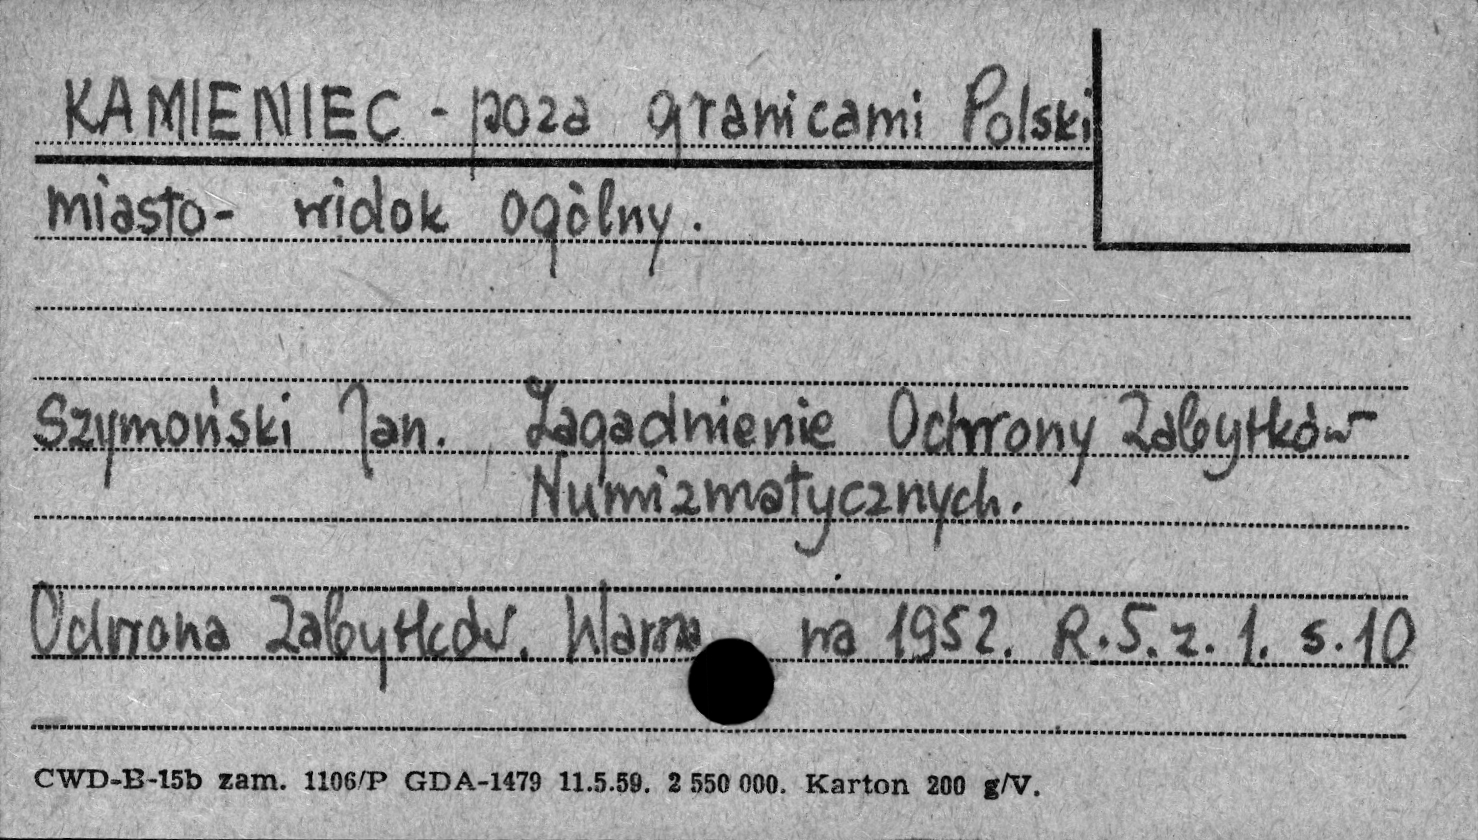 KAMIENIEC - poza granicami Polski
miasto - widok ogòlny.
Szymoński Jan. Zagadnienie Ochrony Zabytków
Numizmatycznych.
Ochrona Zabytków. na 1952. R.5. z. 1. s. 10
CWD-B-15b zam. 1106/P GDA-1479 11.5.59. 2 550 000. Karton 200 g/V.